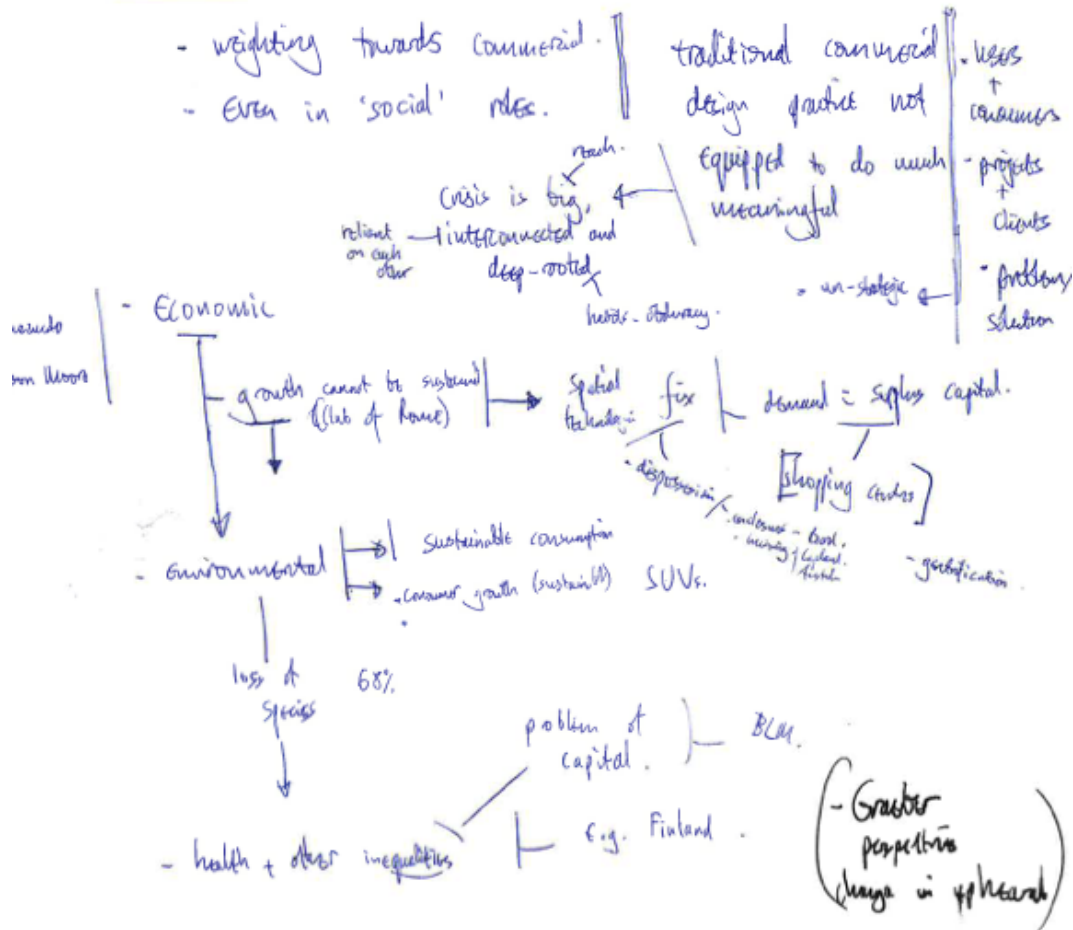 - weighting towards commercial.
- Even in 'social' roles.
traditional commercial
design practice not
Equipped to do much
meaningful
- users
+
consumers
- projects
+
clients
- problem/
solution
- un-strategic
reach.
Crisis is big,
interconnected and
deep-rooted
reliant
on each
other
- Economic
- growth cannot be sustained
(Club of Rome)
Spatial
fix
demand = surplus capital.
[shopping centres]
- gentrification
- dispossession/
- Environmental
sustainable consumption
- consumer growth (sustain) SUVs.
loss of 68%
species
problem of
capital.
BLM.
- health + other inequalities
E.g. Finland.
- Graeber
perspective
change in